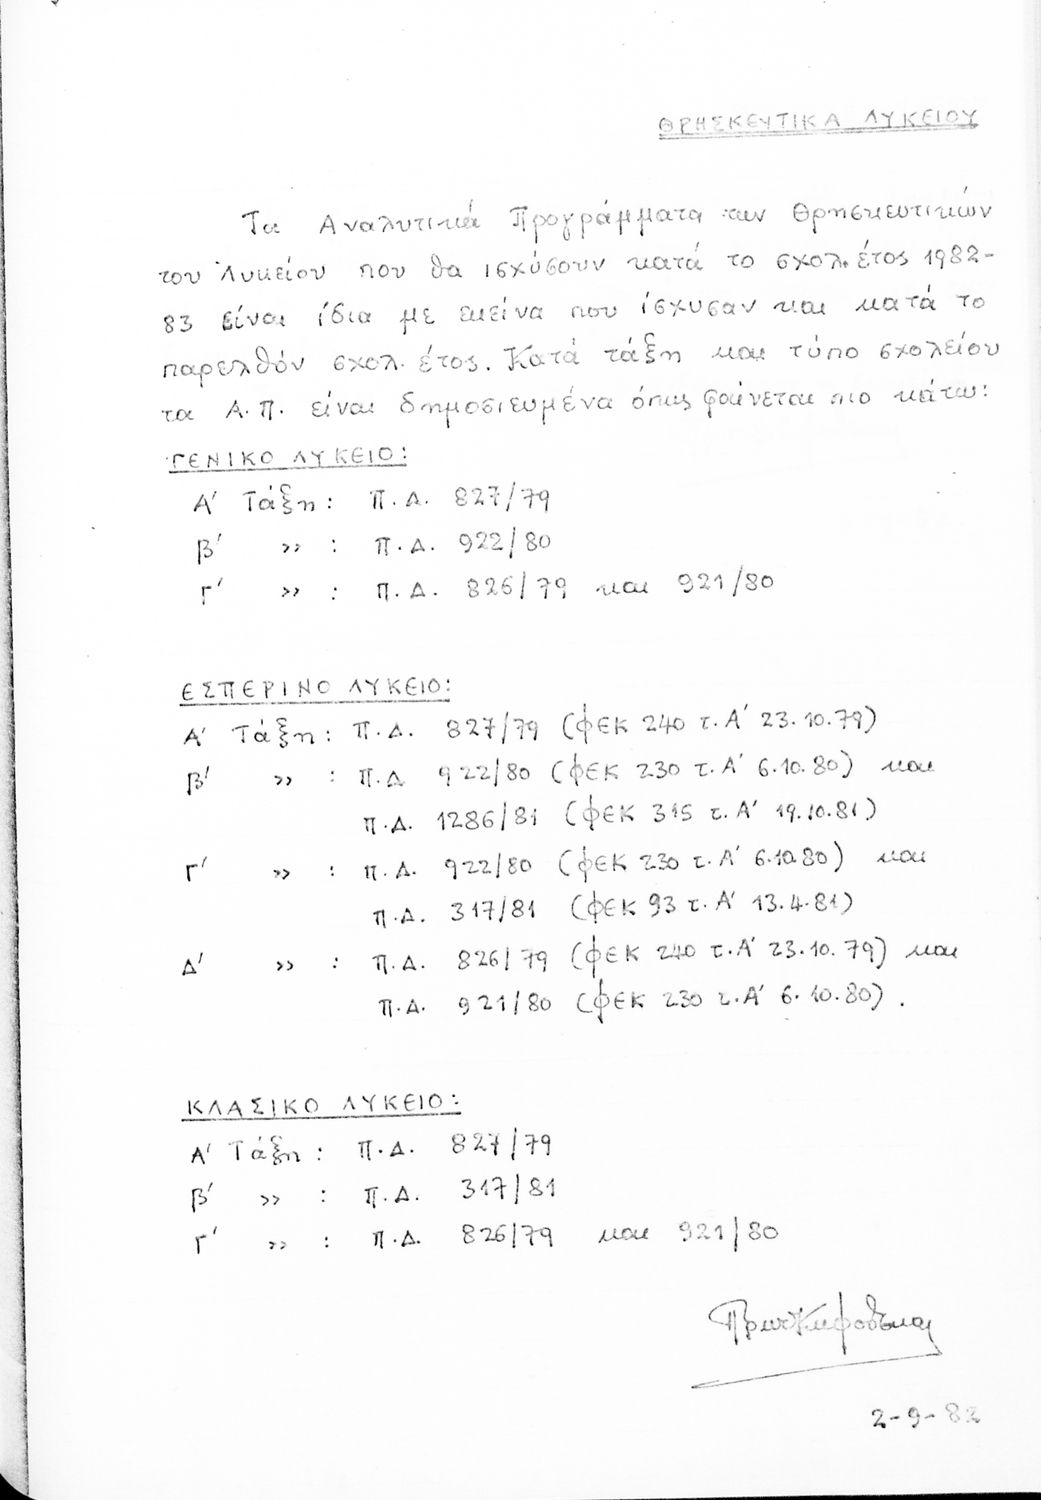 ΘΡΗΣΚΕΥΤΙΚΑ ΛΥΚΕΙΟΥ
Τα Αναλυτικά Προγράμματα των Θρησκευτικών
του Λυκείου που θα ισχύσουν κατά το σχολ. έτος 1982-
83 είναι ίδια με εκείνα που ίσχυσαν και κατά το
παρελθόν σχολ. έτος. Κατά τάξη και τύπο σχολείου
τα Α.Π. είναι δημοσιευμένα όπως φαίνεται πιο κάτω:
ΓΕΝΙΚΟ ΛΥΚΕΙΟ:
Α' Τάξη: Π.Δ. 827/79
Β' » : Π.Δ. 922/80
Γ' » : Π.Δ. 826/79 και 921/80
ΕΣΠΕΡΙΝΟ ΛΥΚΕΙΟ:
Α' Τάξη: Π.Δ. 827/79 (ΦΕΚ 240 τ. Α' 23.10.79)
Β' » : Π.Δ 922/80 (ΦΕΚ 230 τ. Α' 6.10.80) και
Π.Δ. 1286/81 (ΦΕΚ 315 τ. Α' 19.10.81)
Γ' » : Π.Δ. 922/80 (ΦΕΚ 230 τ. Α' 6.10.80) και
Π.Δ. 317/81 (ΦΕΚ 93 τ. Α' 13.4.81)
Δ' » : Π.Δ. 826/79 (ΦΕΚ 240 τ. Α' 23.10.79) και
Π.Δ. 921/80 (ΦΕΚ 230 τ. Α' 6.10.80).
ΚΛΑΣΙΚΟ ΛΥΚΕΙΟ:
Α' Τάξη: Π.Δ. 827/79
Β' » : Π.Δ. 317/81
Γ' » : Π.Δ. 826/79 και 921/80
2-9-82